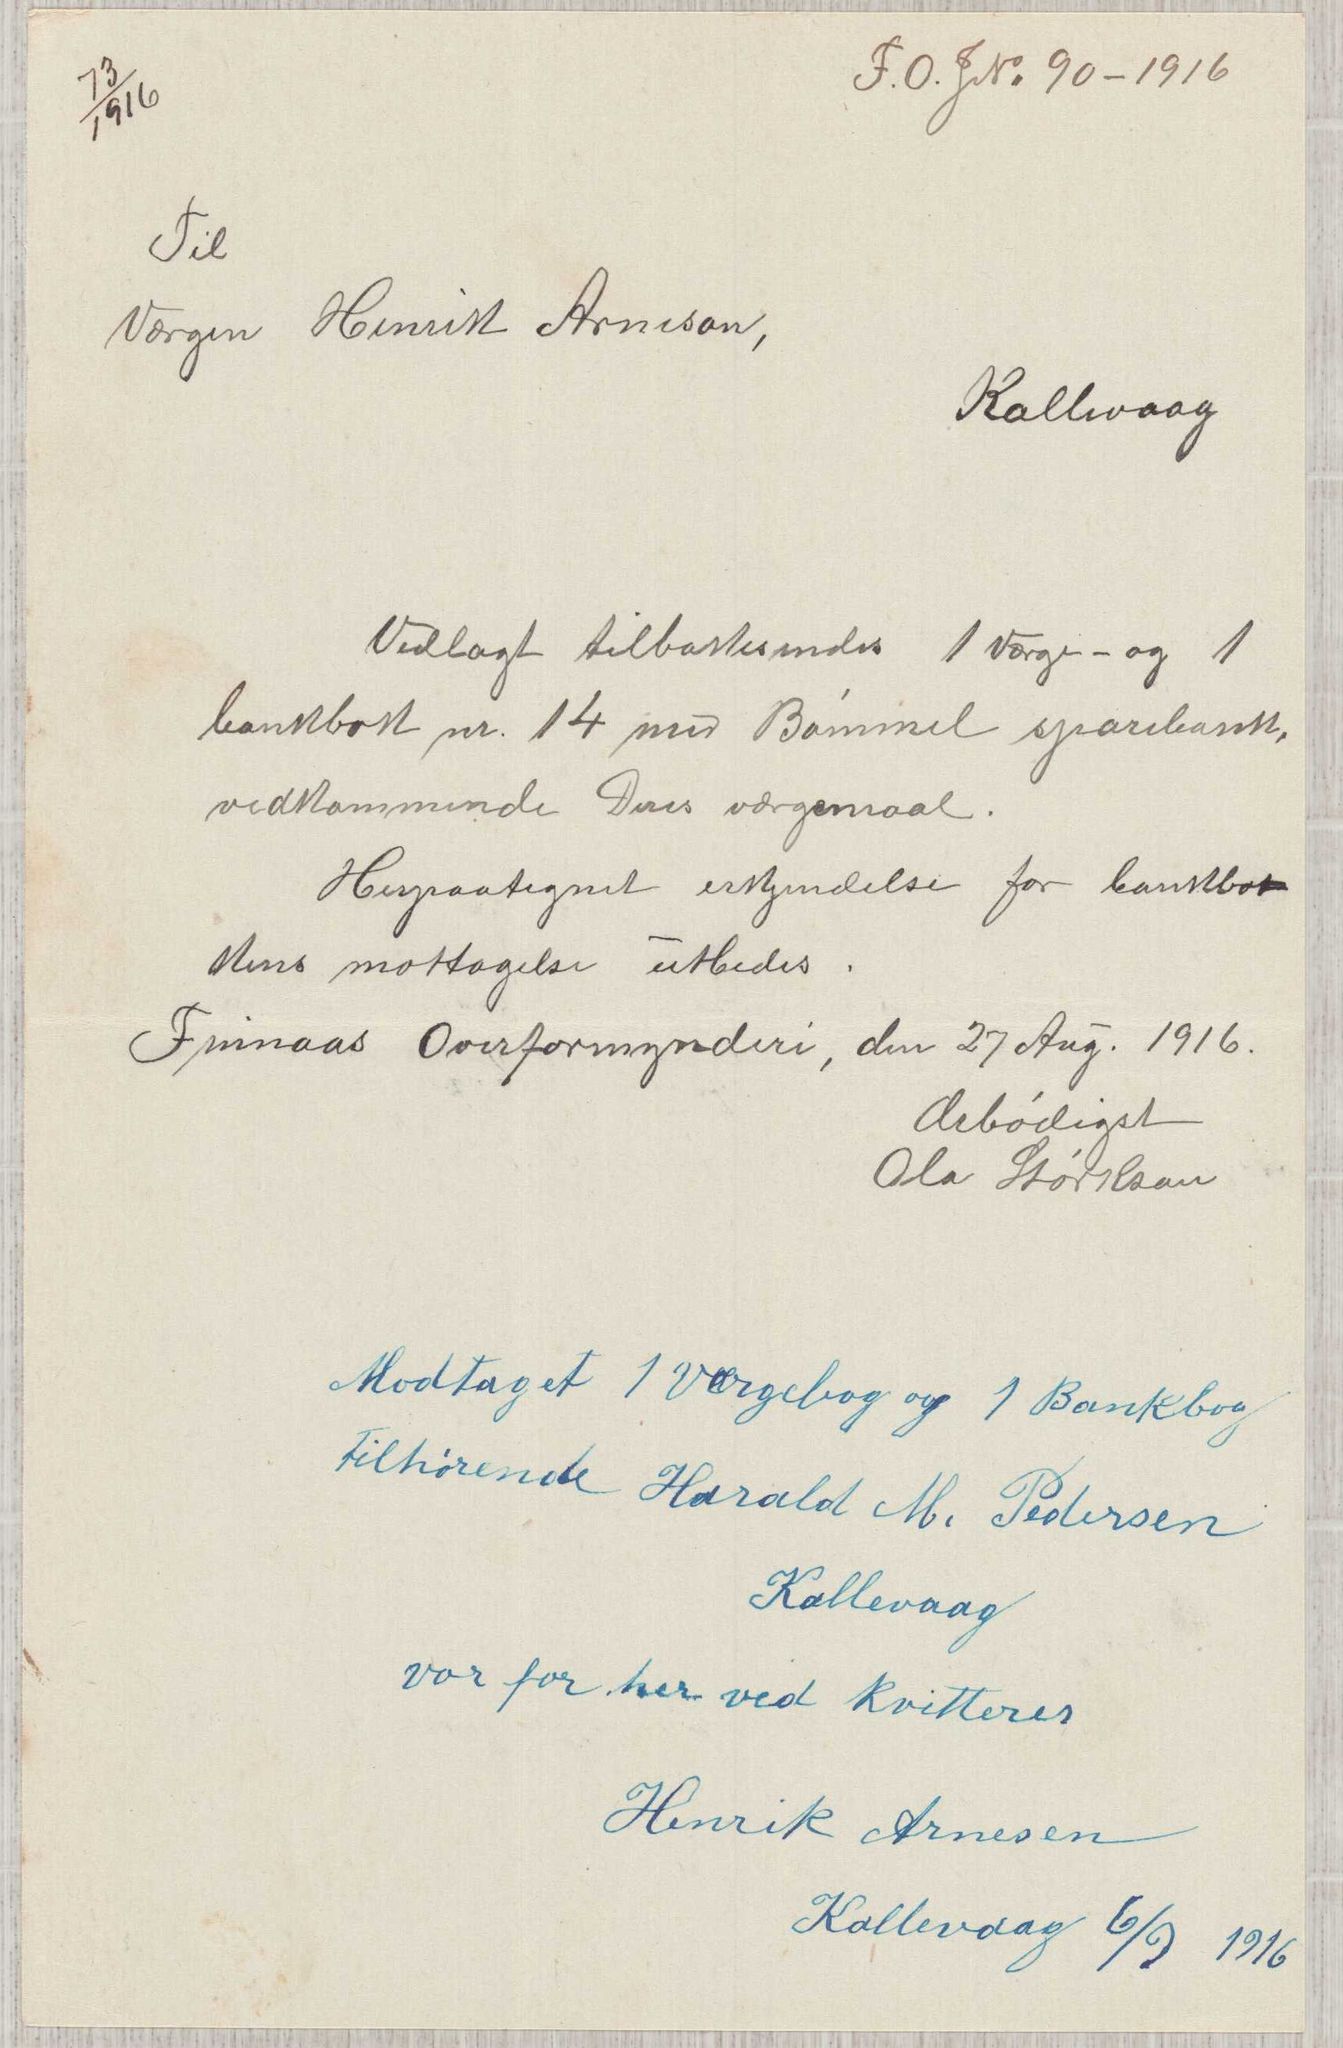 73
1916
F.O. J№ 90 – 1916
Til
Værgen Henrik Arneson,
Kallevaag
Vedlagt tilbakesendes 1 værge- og 1
bankbok nr. 14 med Bømmel sparebank,
vedkommende Deres værgemaal.
Herpaategnet erkjendelse for bankbo-
kens mottagelse utbedes.
Finnaas Overformynderi, den 27 Aug. 1916.
Ærbødigst
Ola Størkson
Modtaget 1 Værgebog og 1 Bankbog
tilhørende Harald M. Pedersen
Kallevaag
vor for her ved kvitteres
Henrik Arnesen
Kallevaag 6/9 1916